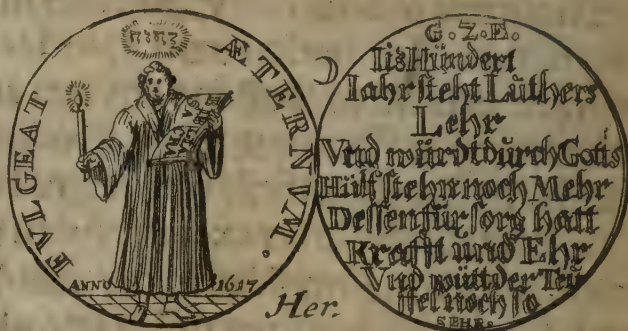 FVLGEAT ÆTERNVM.
ANNO 1617
Her.
G. Z. E.
Iis Hündert
Iahr steht Lüthers
Lehr
Vnd würdt dürch Gotis
Hülf stehn noch Mehr
Dessen fürsorg hatt
Krafft und Ehr
Vnd wütt der Teü
ffel noch so
SEHR.